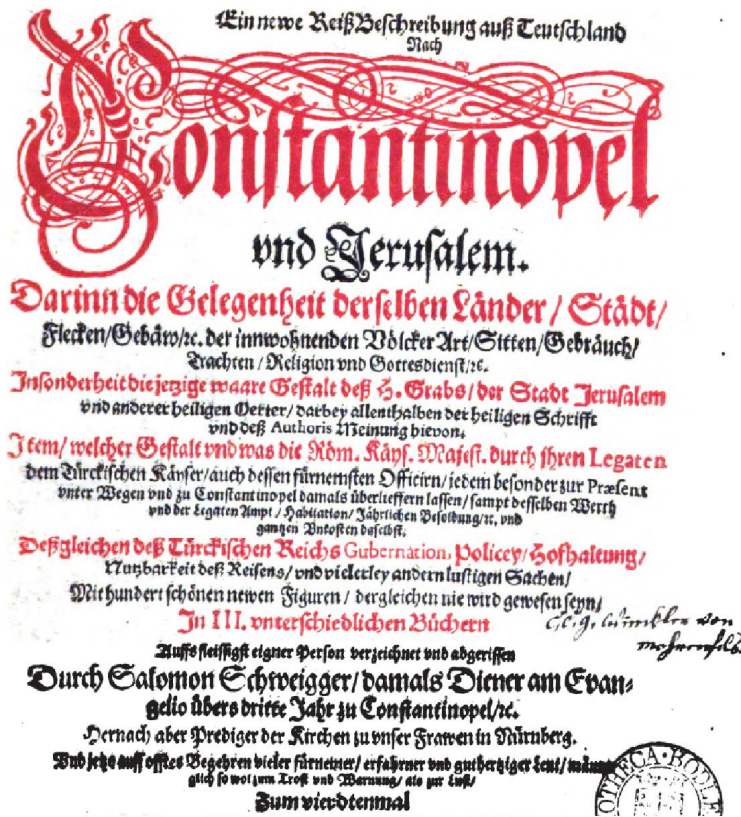 Ein newe Reiß Beschreibung auß Teutschland
Nach
Constantinopel
vnd Jerusalem.
Darinn die Gelegenheit derselben Länder / Städt /
Flecken/Gebäw/ꝛc. der innwohnenden Völcker Art/Sitten/Gebräuch/
Trachten / Religion vnd Gottesdienst/ꝛc.
Insonderheit die jetzige waare Gestalt deß H. Grabs/der Stadt Jerusalem
vnd anderer heiligen Oerter/darbey allenthalben der heiligen Schrifft
vnd deß Authoris Meinung hievon.
Item/ welcher Gestalt vnd was die Röm. Käys. Majest. durch jhren Legaten
dem Türckischen Käyser/auch dessen fürnemsten Officirn/jedem besonder zur Præsent
vnter Wegen vnd zu Constantinopel damals überlieffern lassen/sampt desselben Werth
vnd der Legaten Ampt / Habitation/ Jährlichen Besoldung/ꝛc. vnd
gantzen Vnkosten daselbst.
Deßgleichen deß Türckischen Reichs Gubernation, Policey/Hofhaltung/
Nutzbarkeit deß Reisens/ vnd vielerley andern lustigen Sachen/
Mit hundert schönen newen Figuren / dergleichen nie wird gewesen seyn/
In III. vnterschiedlichen Büchern
Auffs fleissigst eigner Person verzeichnet vnd abgerissen
Durch Salomon Schweigger/ damals Diener am Evan-
gelio übers dritte Jahr zu Constantinopel/ꝛc.
Hernach aber Prediger der Kirchen zu vnser Frawen in Nürnberg.
Vnd jetzo auff offtes Begehren vieler fürnemer/ erfahrner vnd guthertziger Leut/
glich so wol zum Trost vnd Warnung/ als zur Lust/
Zum vierdtenmal